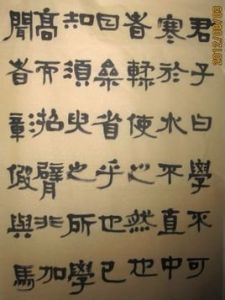 君子曰學不可
寒於水不直中
者輮使之然也
日參省乎
知須臾之所學
高而招臂非加
聞者章假輿馬